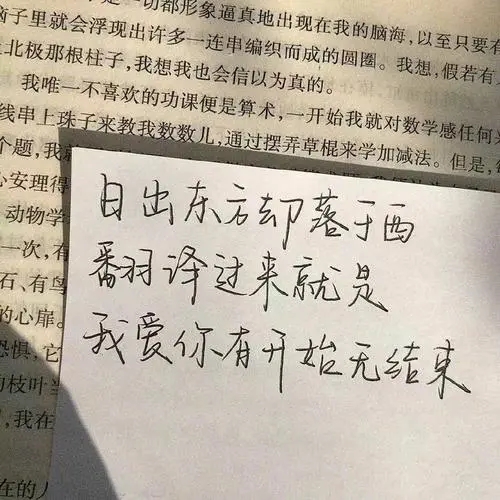 一切都形象逼真地出现在我的脑海，以至只要有
脑子里就会浮现出许多一连串编织而成的圆圈。我想，假若有
北极那根柱子，我想我也会信以为真的。
我唯一不喜欢的功课便是算术，一开始我就对数学感任何
线串上珠子来教我数数儿，通过摆弄草棍来学加减法。但是，
个题，我
心安理得
动物学
一次，有
石、有鸟
的心扉。
恐惧，它
枝叶当
，我在
在的人
日出东方却落于西
翻译过来就是
我爱你有开始无结束